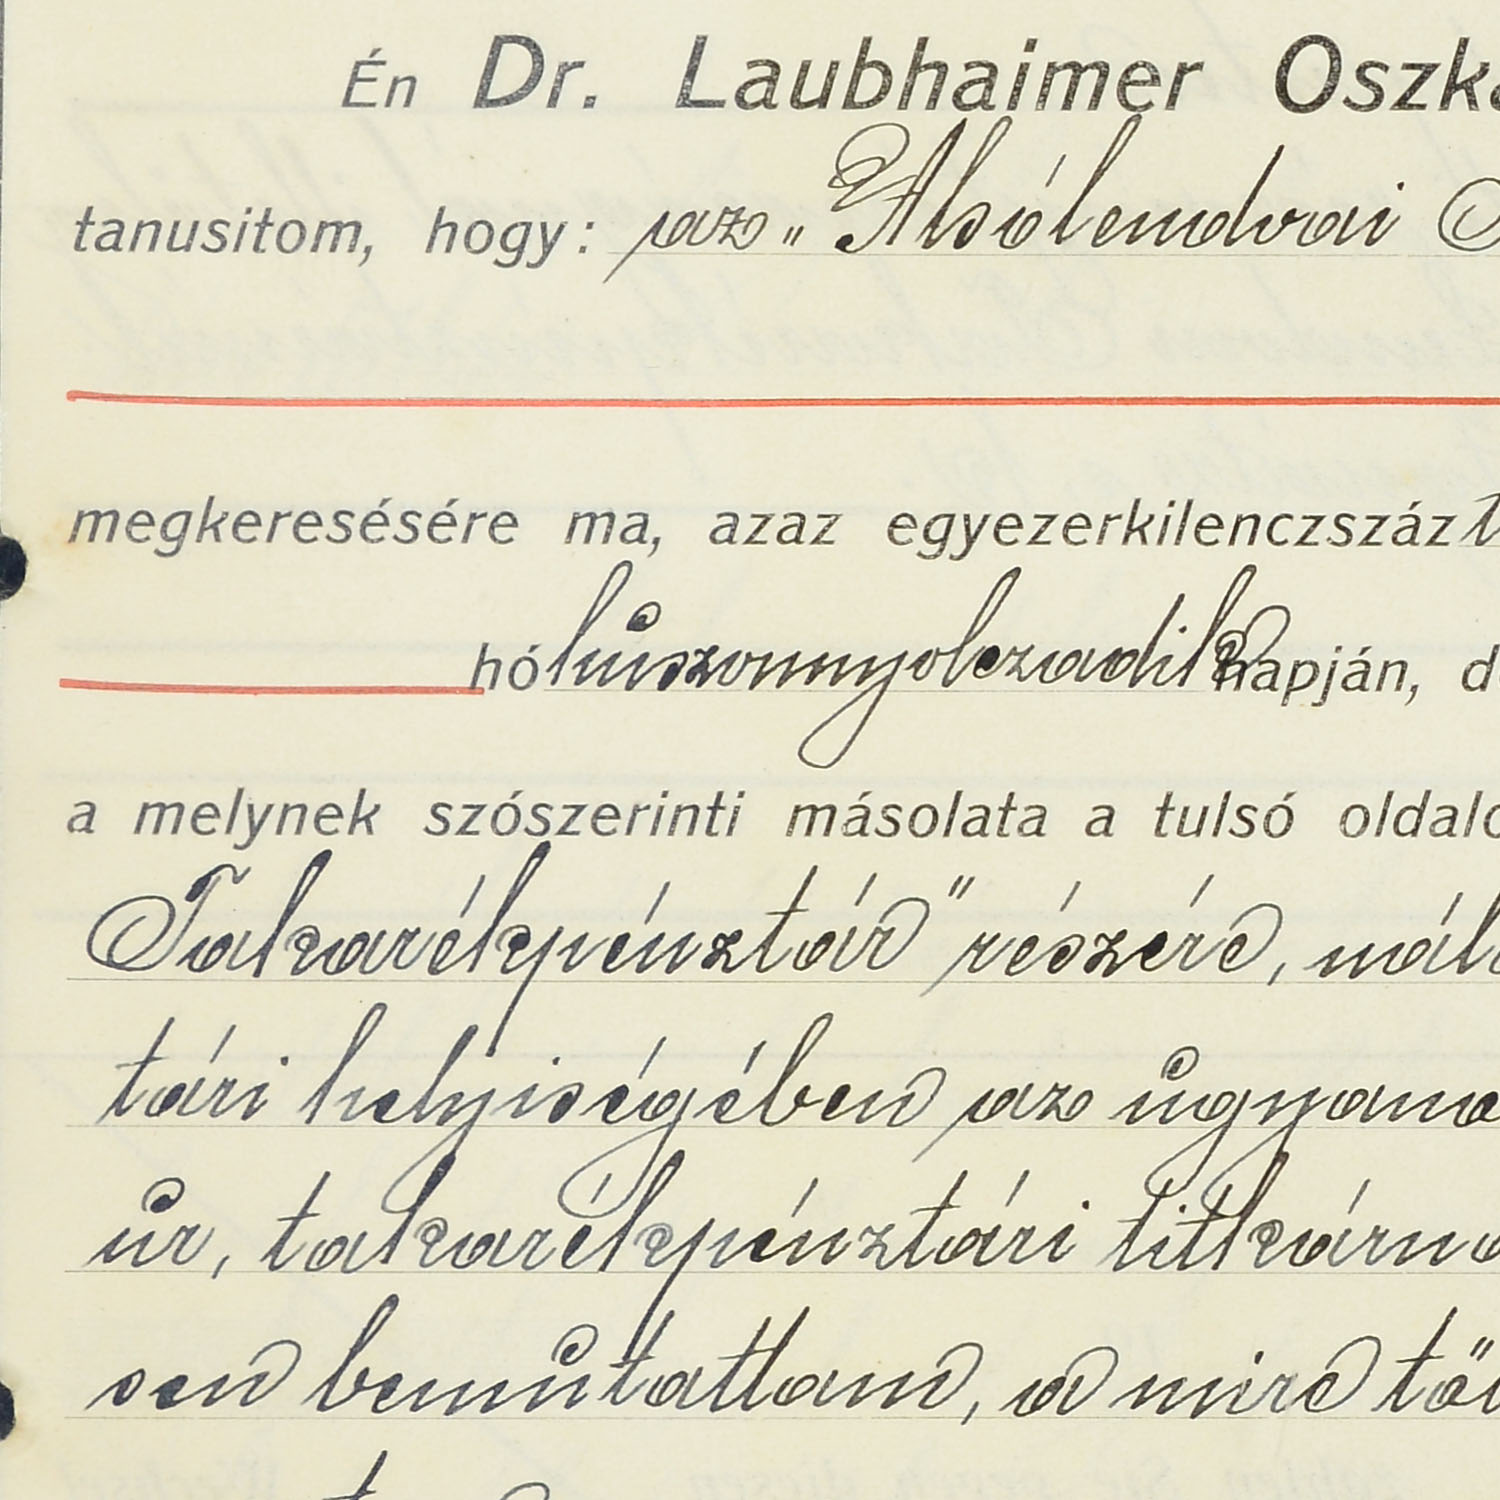 Én Dr. Laubhaimer Oszká
tanusitom, hogy: az „Alsólendvai
megkeresésére ma, azaz egyezerkilenczszáz
hó huszonnyolczadik napján, d
a melynek szószerinti másolata a tulsó oldalo
Takarékpénztár" részére, nála
tári helyiségében az ugyana
úr, takarékpénztári titkárna
sen bemutattam, a mire